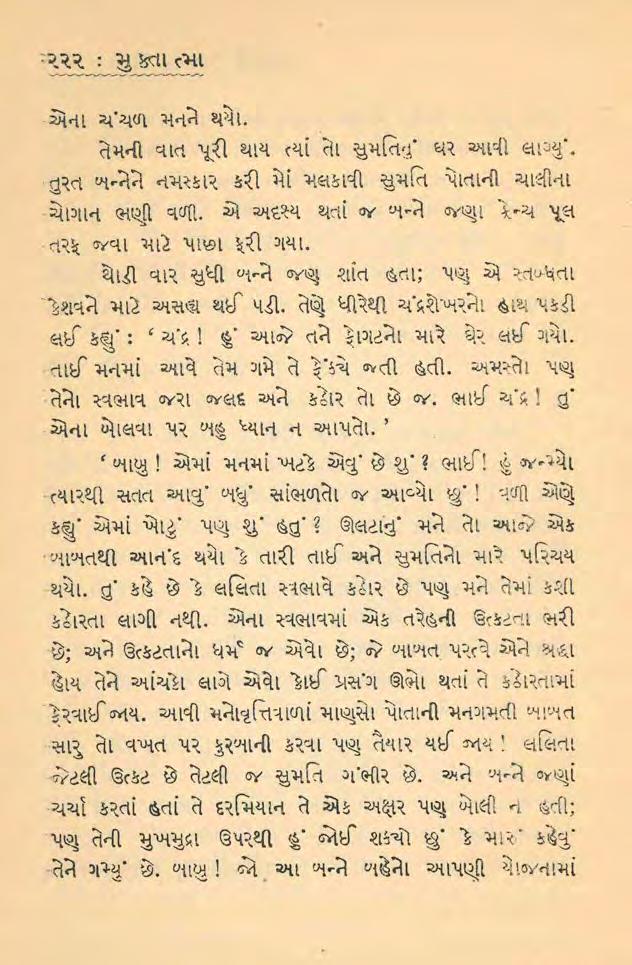 ૨૨૨ : મુક્તાત્મા
એના ચંચળ મનને થયો.
તેમની વાત પૂરી થાય ત્યાં તો સુમતિનું ઘર આવી લાગ્યું.
તુરત બન્નેને નમસ્કાર કરી મોં મલકાવી સુમતિ પોતાની ચાલીના
ચોગાન ભણી વળી. એ અદૃશ્ય થતાં જ બન્ને જણા ફ્રેન્ચ પૂલ
તરફ જવા માટે પાછા ફરી ગયા.
થોડી વાર સુધી બન્ને જણ શાંત હતા; પણ એ સ્તબ્ધતા
કેશવને માટે અસહ્ય થઈ પડી. તેણે ધીરેથી ચંદ્રશેખરનો હાથ પકડી
લઈ કહ્યું : ‘ ચંદ્ર ! હું આજે તને ફોગટનો મારે ઘેર લઈ ગયો.
તાઈ મનમાં આવે તેમ ગમે તે ફેંકચે જતી હતી. અમસ્તો પણ
તેનો સ્વભાવ જરા જલદ અને કઠોર તો છે જ. ભાઈ ચંદ્ર ! તું
એના બોલવા પર બહુ ધ્યાન ન આપતો. ’
‘ બાબુ ! એમાં મનમાં ખટકે એવું છે શું ? ભાઈ ! હું જન્મ્યો
ત્યારથી સતત આવું બધું સાંભળતો જ આવ્યો છું ! વળી એણે
કહ્યું એમાં ખોટું પણ શું હતું ? ઊલટાંનું મને તો આજે એક
બાબતથી આનંદ થયો કે તારી તાઈ અને સુમતિનો મારે પરિચય
થયો. તું કહે છે કે લલિતા સ્વભાવે કઠોર છે પણ મને તેમાં કશી
કઠોરતા લાગી નથી. એના સ્વભાવમાં એક તરેહની ઉત્કટતા ભરી
છે; અને ઉત્કટતાનો ધર્મ જ એવો છે; જે બાબત પરત્વે એને શ્રદ્ધા
હોય તેને આંચકો લાગે એવો કોઈ પ્રસંગ ઊભો થતાં તે કઠોરતામાં
ફેરવાઈ જાય. આવી મનોવૃત્તિવાળાં માણસો પોતાની મનગમતી બાબત
સારુ તો વખત પર કુરબાની કરવા પણ તૈયાર થઈ જાય ! લલિતા
જેટલી ઉત્કટ છે તેટલી જ સુમતિ ગંભીર છે. અને બન્ને જણાં
ચર્ચા કરતાં હતાં તે દરમિયાન તે એક અક્ષર પણ બોલી ન હતી;
પણ તેની મુખમુદ્રા ઉપરથી હું જોઈ શક્યો છું કે મારું કહેવું
તેને ગમ્યું છે. બાબુ ! જો આ બન્ને બહેનો આપણી યોજનામાં